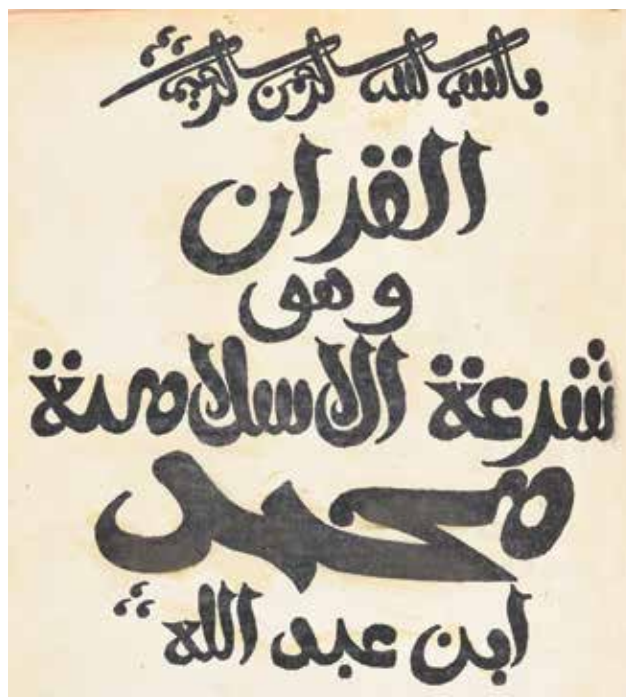 بالسم الله الرحمن الرحيم
القران
وهو
شرعة الاسلامىة
محمد
ابن عبد الله